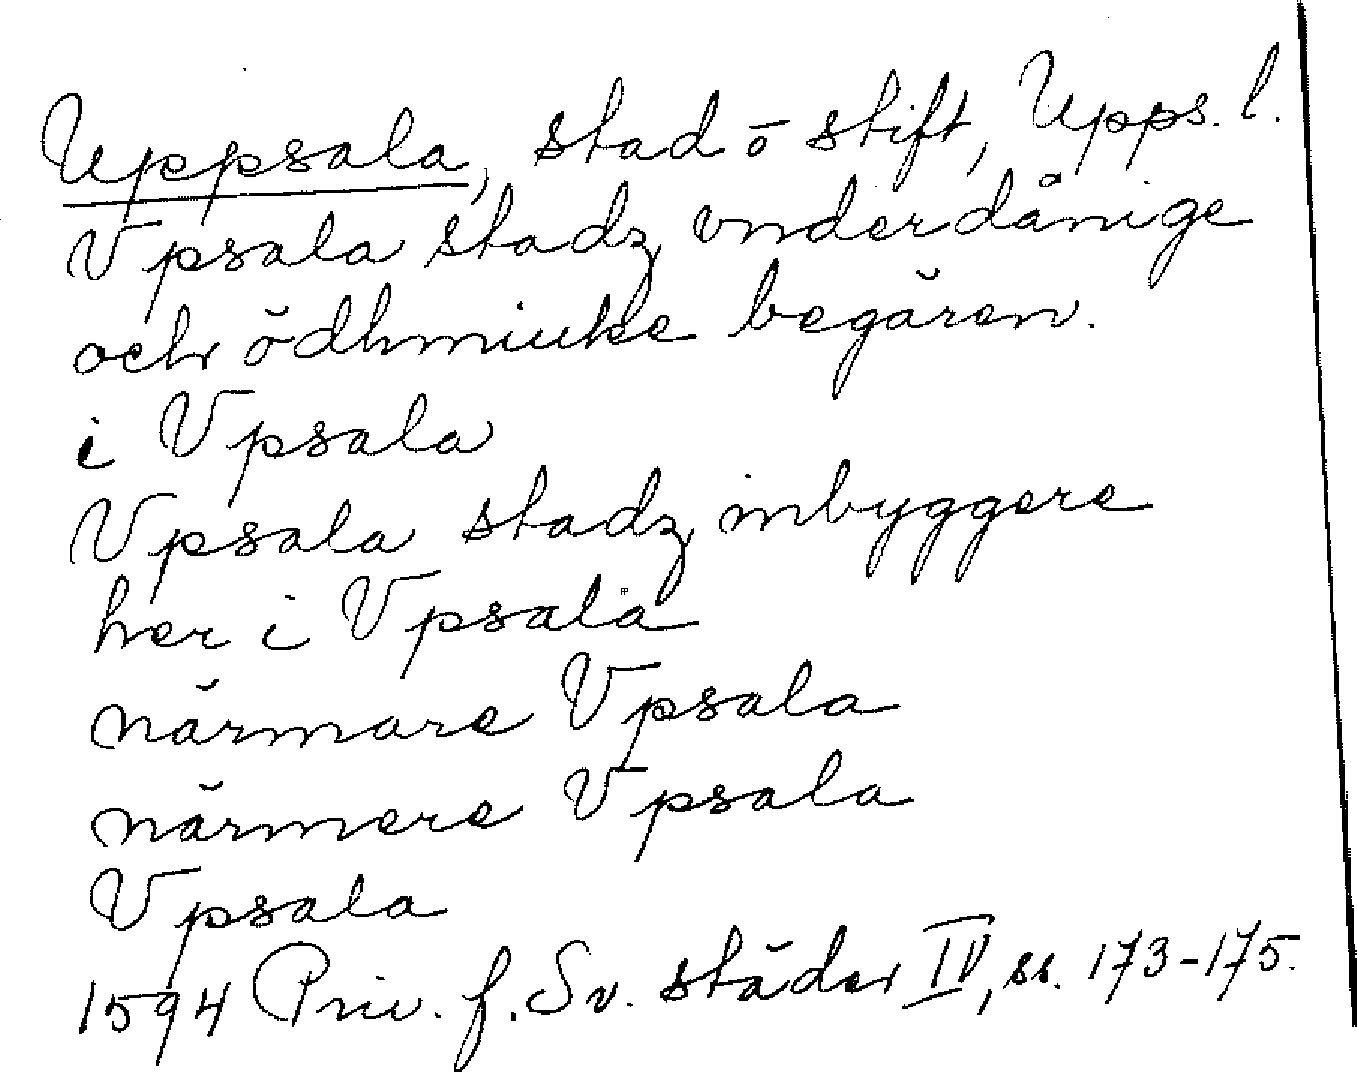 Uppsala, stad o stift, Upps. l.
Vpsala stadz vnderdånige
och ödhmiuke begären.
i Vpsala
Vpsala stadz inbyggere
her i Vpsala
närmare Vpsala
närmere Vpsala
Vpsala
1594 Priv. f. Sv. städer IV, ss. 173-175.